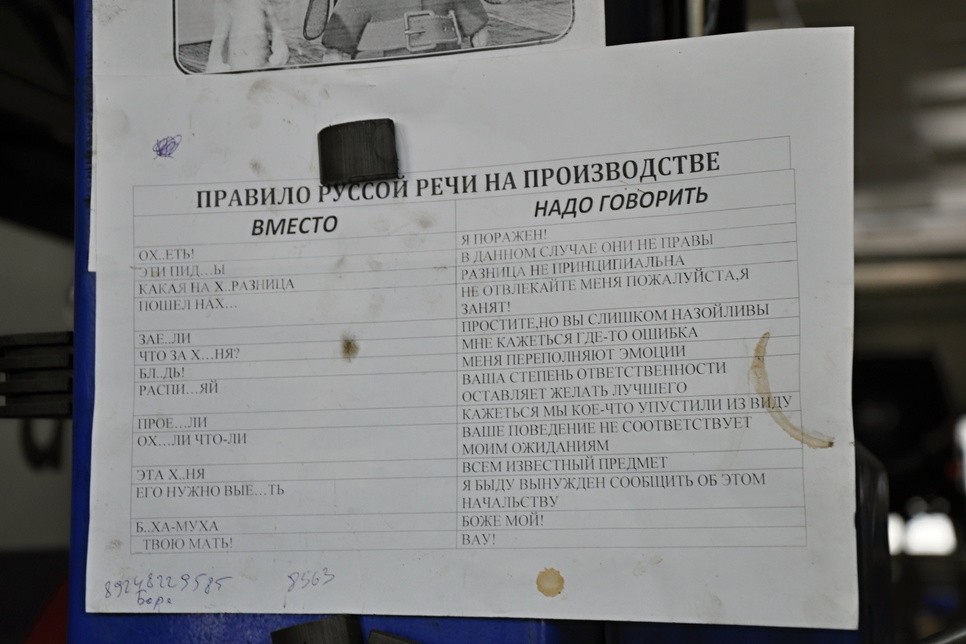 ПРАВИЛО РУССОЙ РЕЧИ НА ПРОИЗВОДСТВЕ
ВМЕСТО
НАДО ГОВОРИТЬ
ОХ..ЕТЬ!
Я ПОРАЖЕН!
ЭТИ ПИД...Ы
В ДАННОМ СЛУЧАЕ ОНИ НЕ ПРАВЫ
КАКАЯ НА Х..РАЗНИЦА
РАЗНИЦА НЕ ПРИНЦИПИАЛЬНА
ПОШЕЛ НАХ...
НЕ ОТВЛЕКАЙТЕ МЕНЯ ПОЖАЛУЙСТА,Я
ЗАНЯТ!
ЗАЕ..ЛИ
ПРОСТИТЕ,НО ВЫ СЛИШКОМ НАЗОЙЛИВЫ
ЧТО ЗА Х...НЯ?
МНЕ КАЖЕТЬСЯ ГДЕ-ТО ОШИБКА
БЛ..ДЬ!
МЕНЯ ПЕРЕПОЛНЯЮТ ЭМОЦИИ
РАСПИ...ЯЙ
ВАША СТЕПЕНЬ ОТВЕТСТВЕННОСТИ
ОСТАВЛЯЕТ ЖЕЛАТЬ ЛУЧШЕГО
ПРОЕ...ЛИ
КАЖЕТЬСЯ МЫ КОЕ-ЧТО УПУСТИЛИ ИЗ ВИДУ
ОХ...ЛИ ЧТО-ЛИ
ВАШЕ ПОВЕДЕНИЕ НЕ СООТВЕТСТВУЕТ
МОИМ ОЖИДАНИЯМ
ЭТА Х..НЯ
ВСЕМ ИЗВЕСТНЫЙ ПРЕДМЕТ
ЕГО НУЖНО ВЫЕ...ТЬ
Я БЫДУ ВЫНУЖДЕН СООБЩИТЬ ОБ ЭТОМ
НАЧАЛЬСТВУ
Б..ХА-МУХА
БОЖЕ МОЙ!
ТВОЮ МАТЬ!
ВАУ!
89248229585
8563